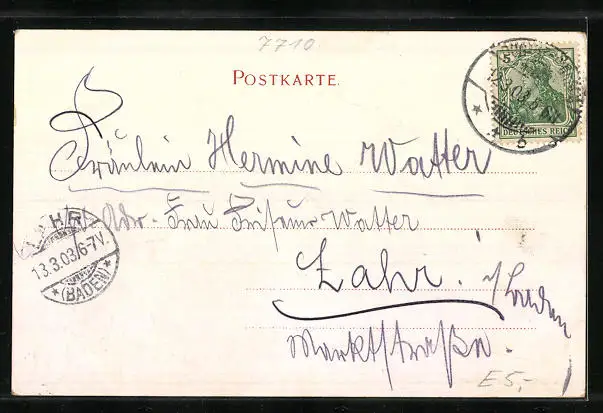 7710
POSTKARTE.
DEUTSCHES REICH
Fräulein Hermine Watter
Adr. Frau Friseur Watter
LAHR
13.3.03. 6-7V.
* (BADEN) *
Lahr. i/Baden
Marktstraße.
E5,-